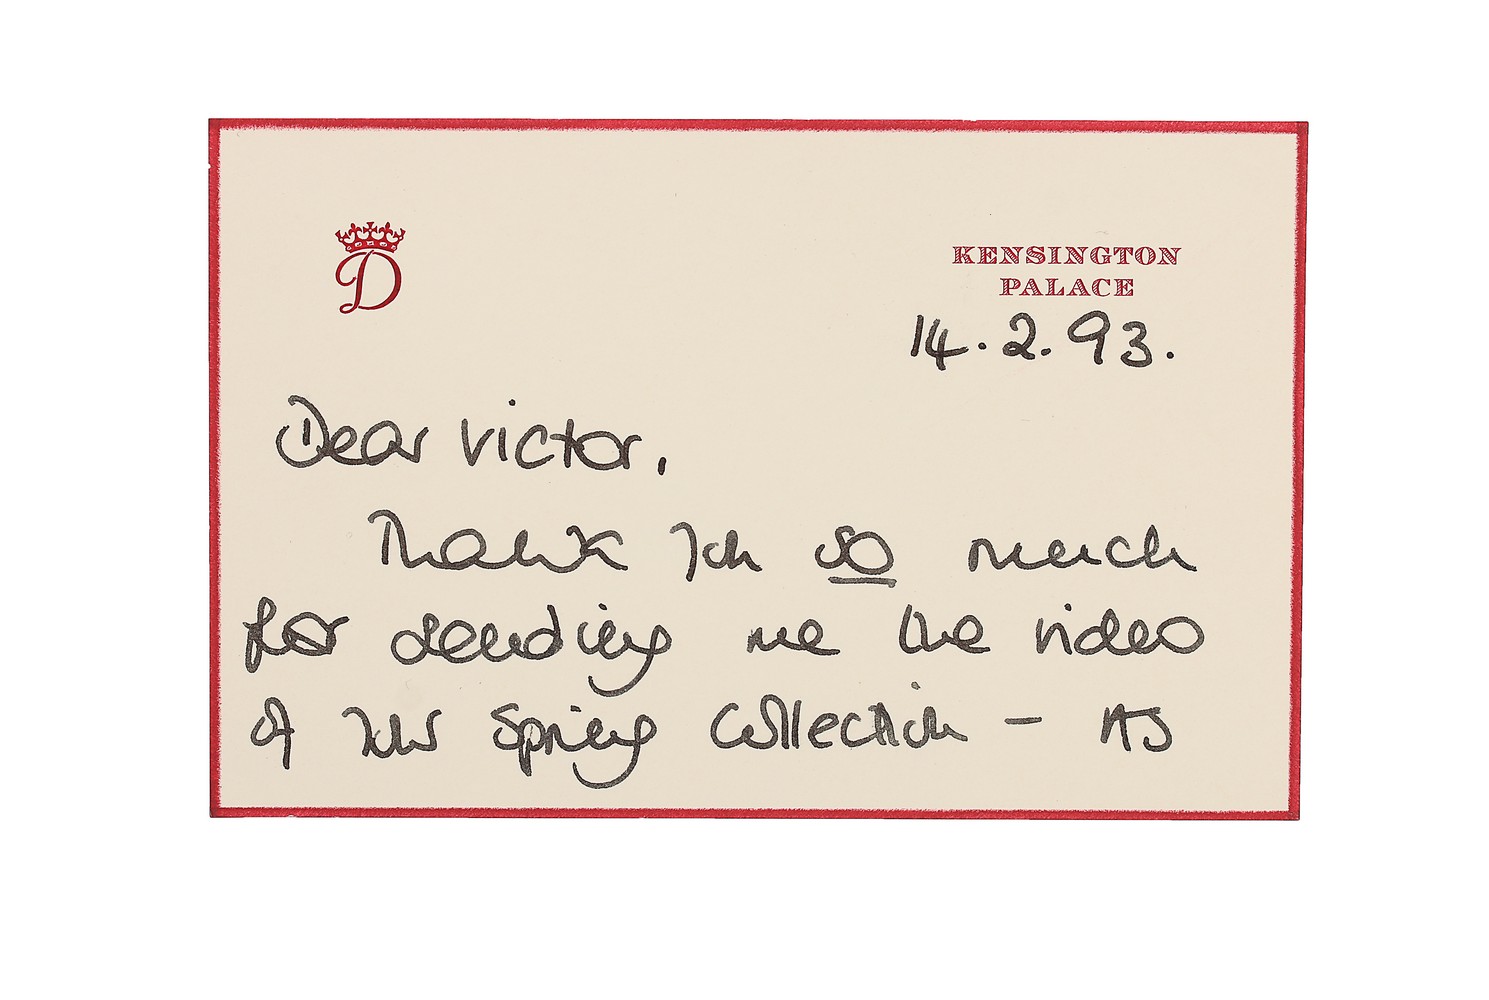 D
KENSINGTON
PALACE
14.2.93.
Dear Victor,
Thank you so much
for sending me the video
of your Spring Collection - As